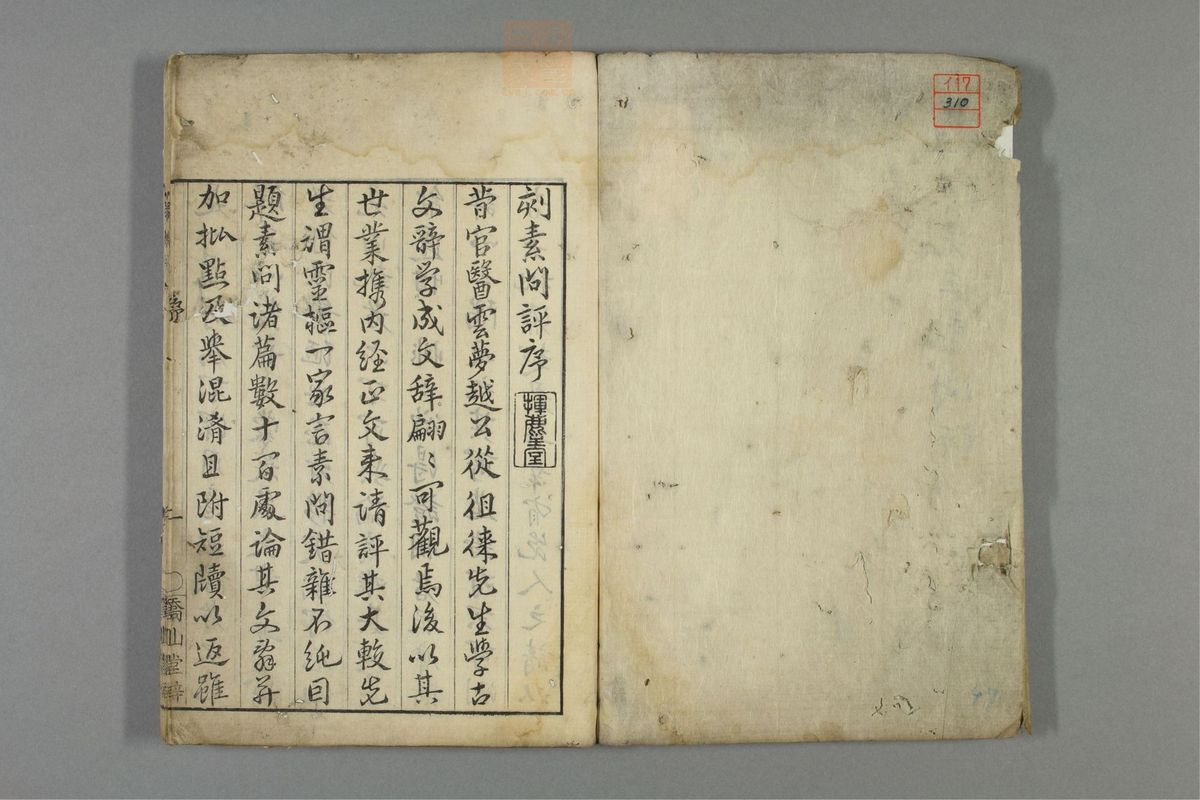 イ17
310
刻素問評序
昔官醫雲夢越公從徂徠先生學古
文辭学成文辞翩〻可觀焉後以其
世業携内经正文来请評其大較先
生謂靈樞一家言素問錯雜不純因
題素問诸篇數十百處論其文辞并
加批點及舉混淆且附短牘以返雖
序